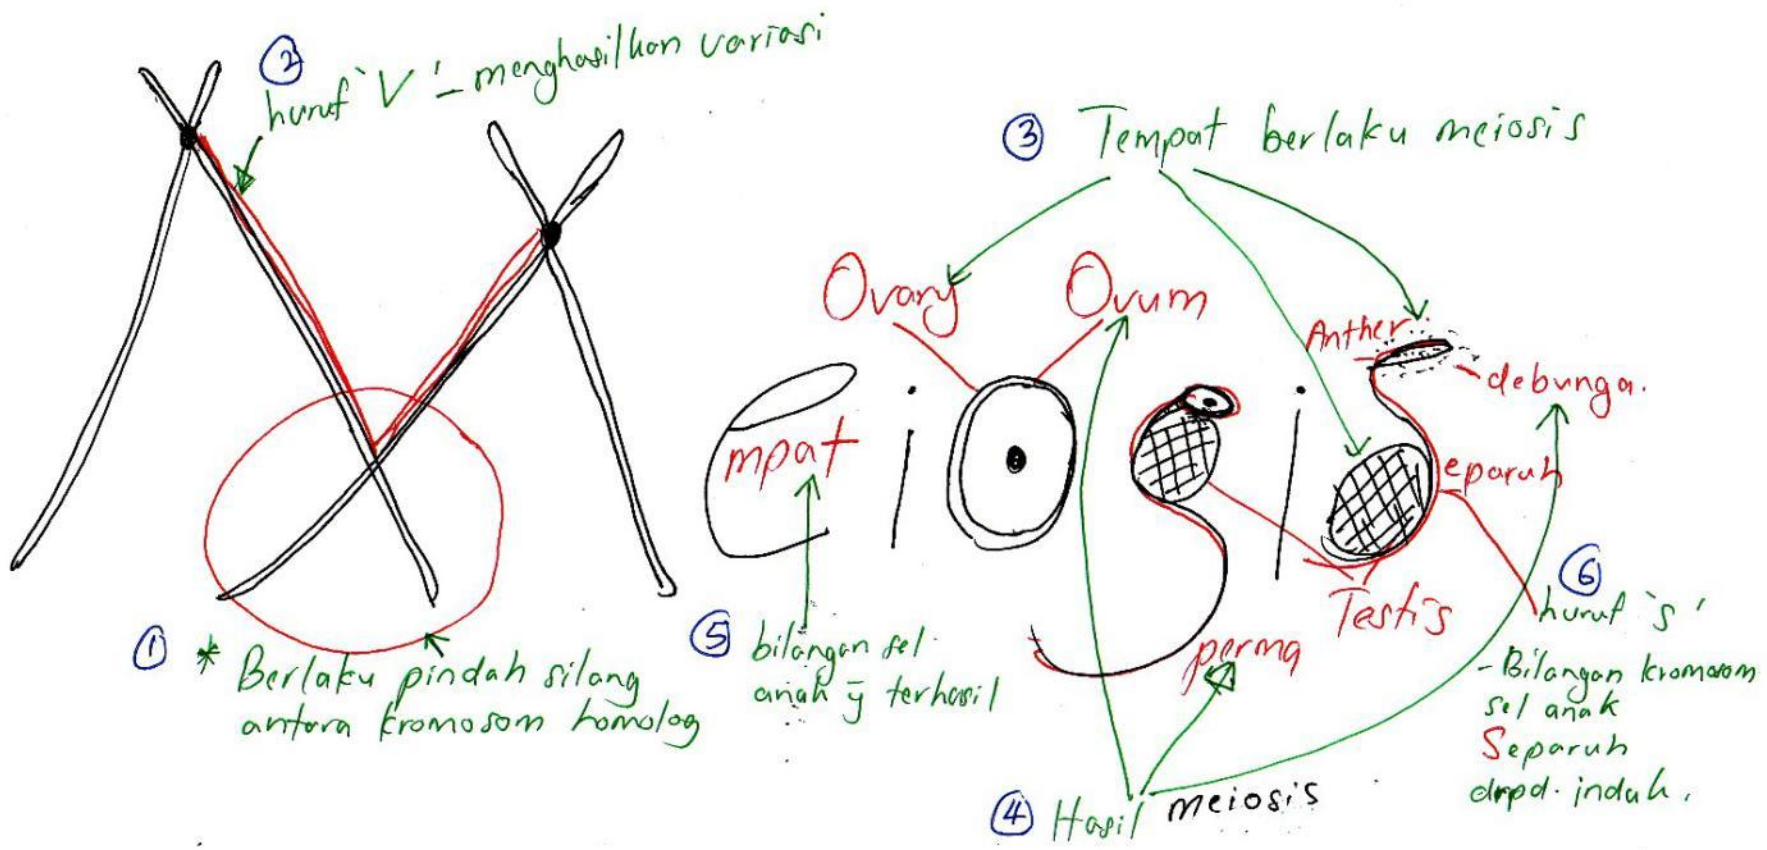 ②
huruf 'V' - menghasilkan variasi
③ Tempat berlaku meiosis
Ovary
Ovum
Anther
debunga.
empat
eiosis
eparuh
Testis
perma
① * Berlaku pindah silang
antara kromosom homolog
⑤ bilangan sel
anak ȳ terhasil
④ Hasil meiosis
⑥
huruf 's'
- Bilangan kromosom
sel anak
Separuh
drpd. induk.